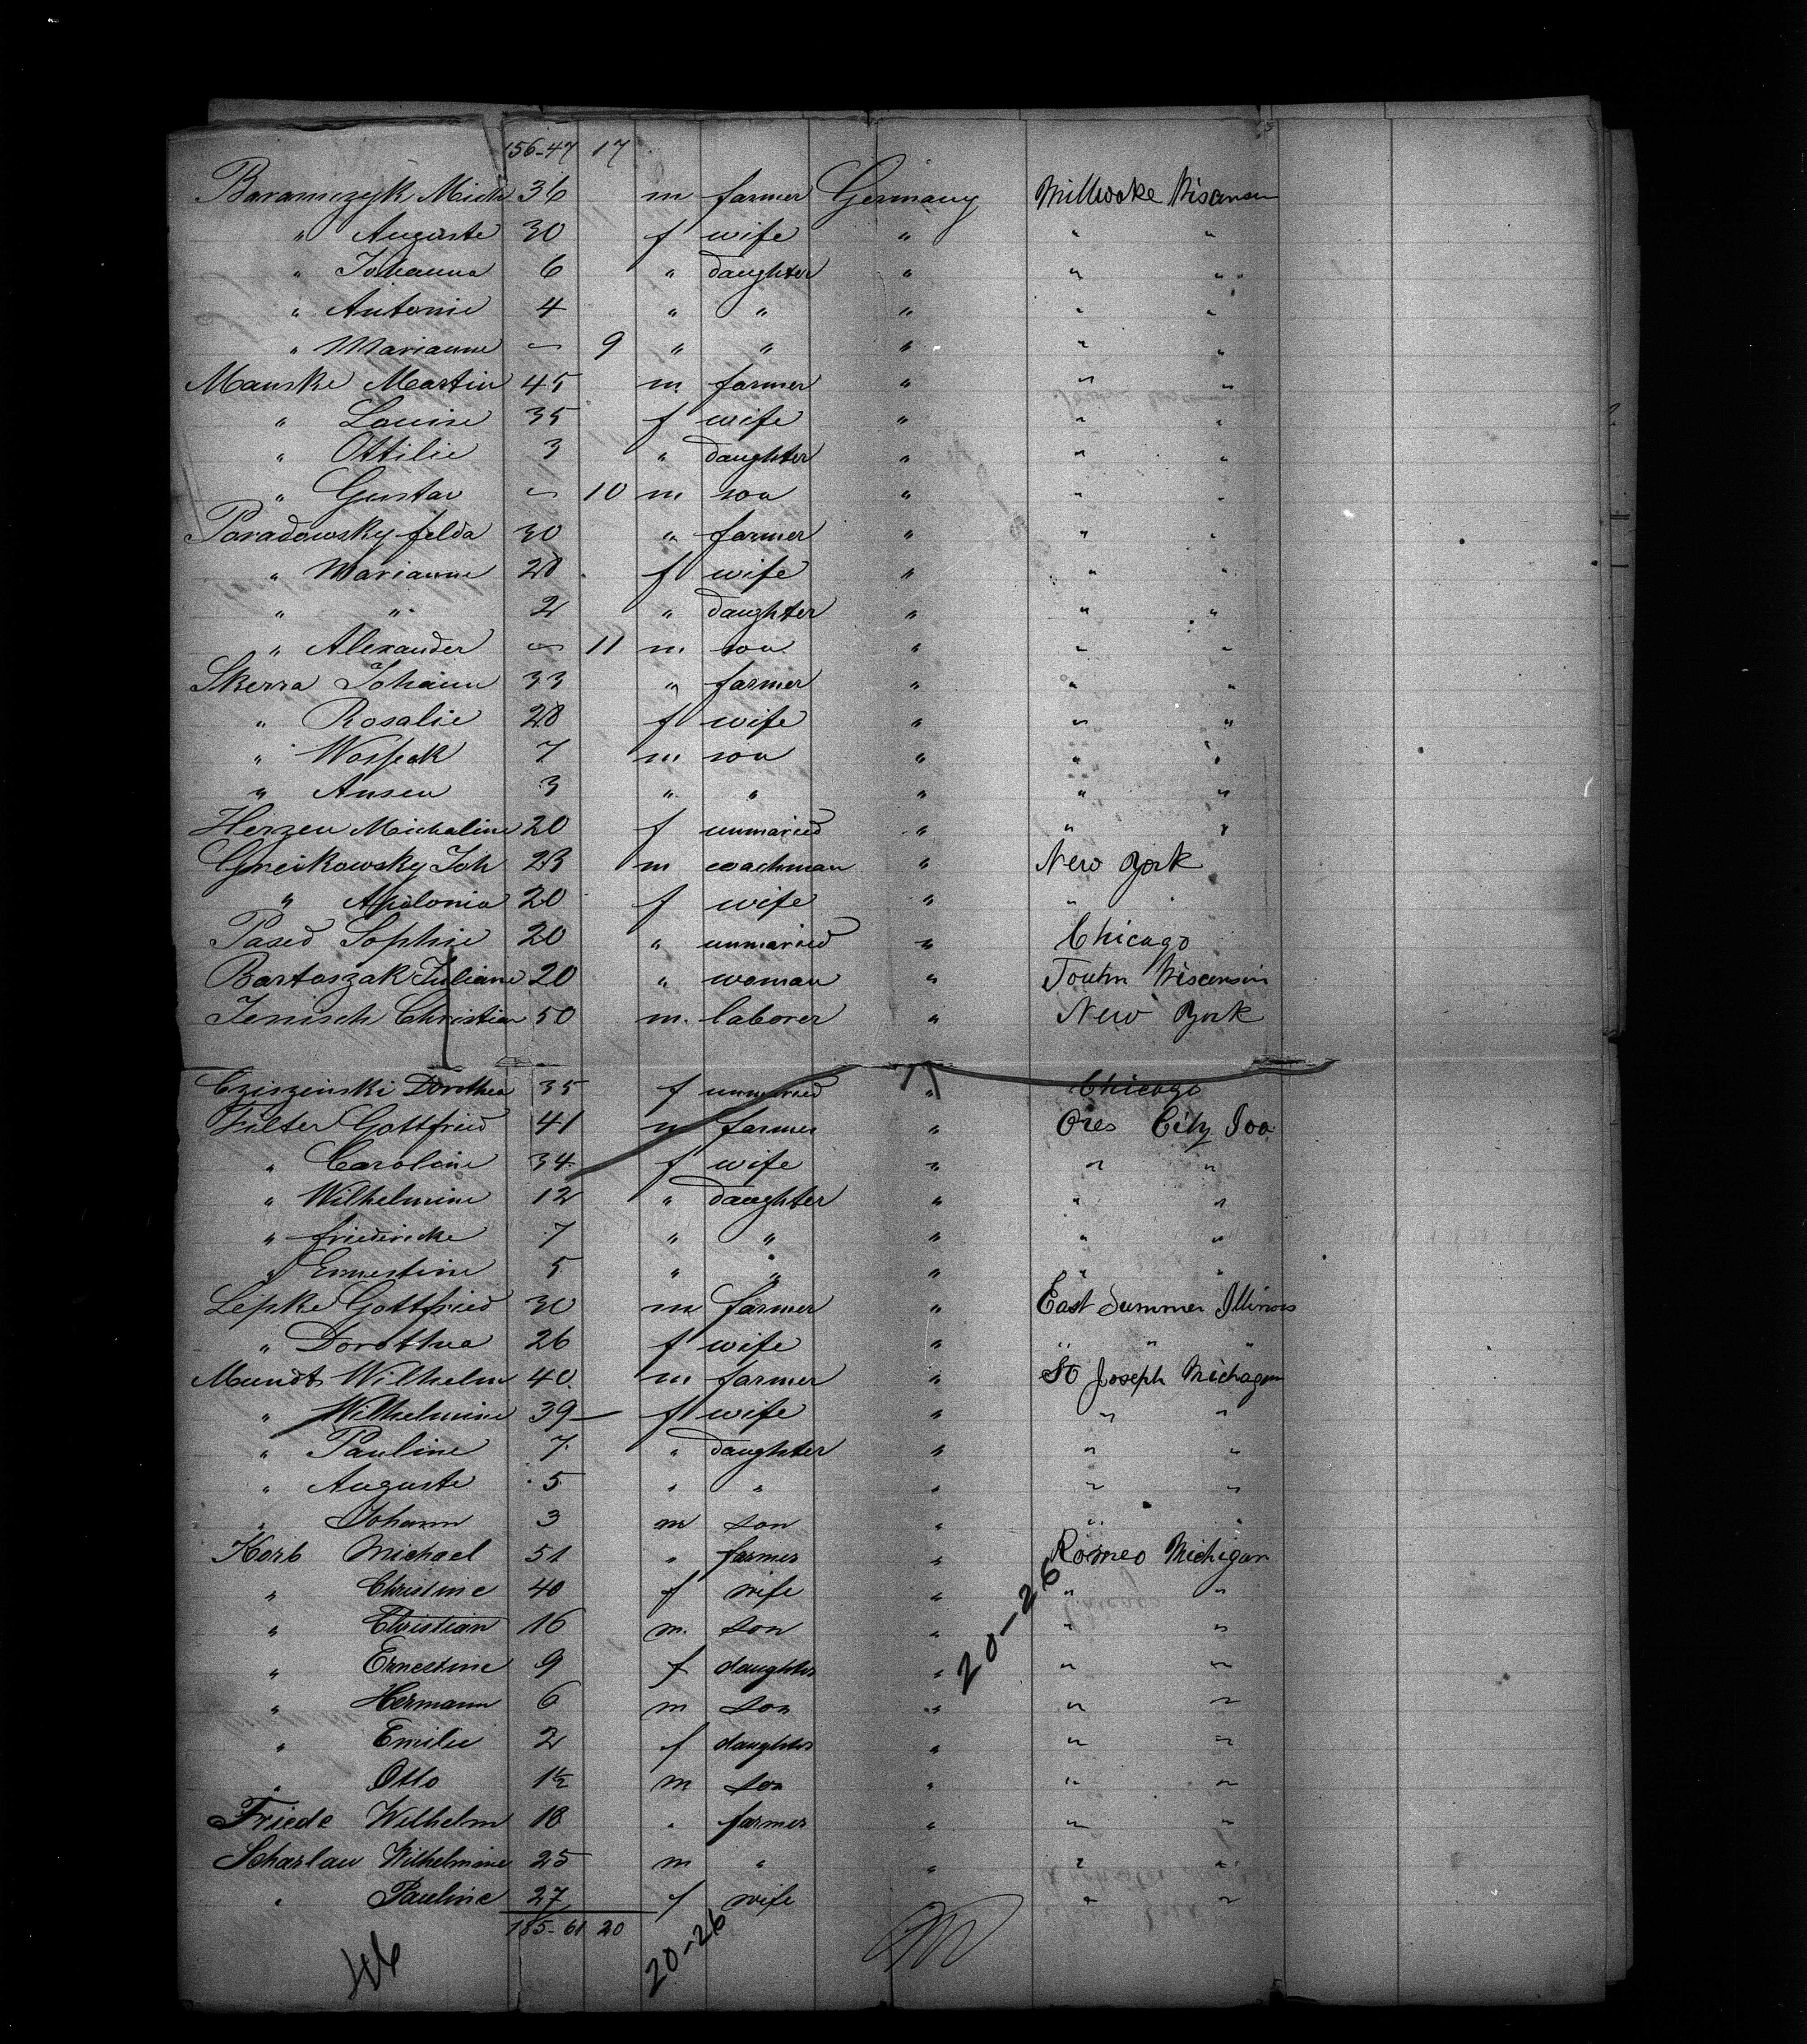 156-47 17
Baramczyk Mich 36 m farmer Germany Millwoke Wisconsin
" Auguste 30 f wife " " "
" Johanna 6 " daughter " " "
" Antonie 4 " " " " "
" Marianne - 9 " " " " "
Manske Martin 45 m farmer " " "
" Louise 35 f wife " " "
" Ottilie 3 " daughter " " "
" Gustav - 10 m son " " "
Paradowsky felda 30 " farmer " " "
" Marianne 28 f wife " " "
" " 2 " daughter " " "
" Alexander - 11 m son " " "
Skerra Johann 33 " farmer " " "
" Rosalie 28 f wife " " "
" Woss 7 m son " " "
" Ansen 3 " " " " "
Herzen Michaline 20 f unmaried " " "
Gneikowsky Joh 23 m coachman " New York
" Apolonia 20 f wife " "
Pased Sophie 20 " unmaried " Chicago
Bartoszak Juliane 20 " woman " Wisconsin
Jenisch Christian 50 m. laborer " New York
Cziszinski Dorothea 35 f unmaried " Chicago
Filter Gottfried 41 m farmer " Ores City Joa
" Caroline 34 f wife " " "
" Wilhelmine 12 " daughter " " "
" friedericke 7 " " " " "
" Ernestine 5 " " " " "
Lipke Gottfried 30 m farmer " East Summer Illinois
" Dorothea 26 f wife " " " "
Mundt Wilhelm 40 m farmer " St Joseph Michagan
" Wilhelmine 39 f wife " " "
" Pauline 7 " daughter " " "
" Auguste 5 " " " " "
" Johann 3 m son " " "
Korb Michael 51 " farmer " Romeo Michigan
" Christine 40 f wife " " "
" Christian 16 m. son " " "
" Ernestine 9 f daughter " " "
" Hermann 6 m son " " "
" Emilie 2 f daughter " " "
" Otto 1½ m son " " "
Friede Wilhelm 18 " farmer " " "
Scharlau Wilhelmine 25 m " " " "
" Pauline 27 f wife " " "
185-61 20
20-26
20-26
46